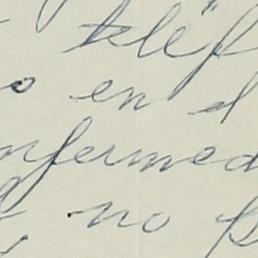 teléf
o en el
nfermed
no p